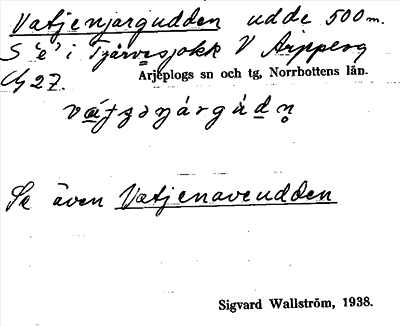 Vatjenjargudden udde 500 m.
S "e" i Tjärvesjokk V Arpperg
27.
Arjeplogs sn och tg, Norrbottens län.
Se även Vatjenaveudden
Sigvard Wallström, 1938.